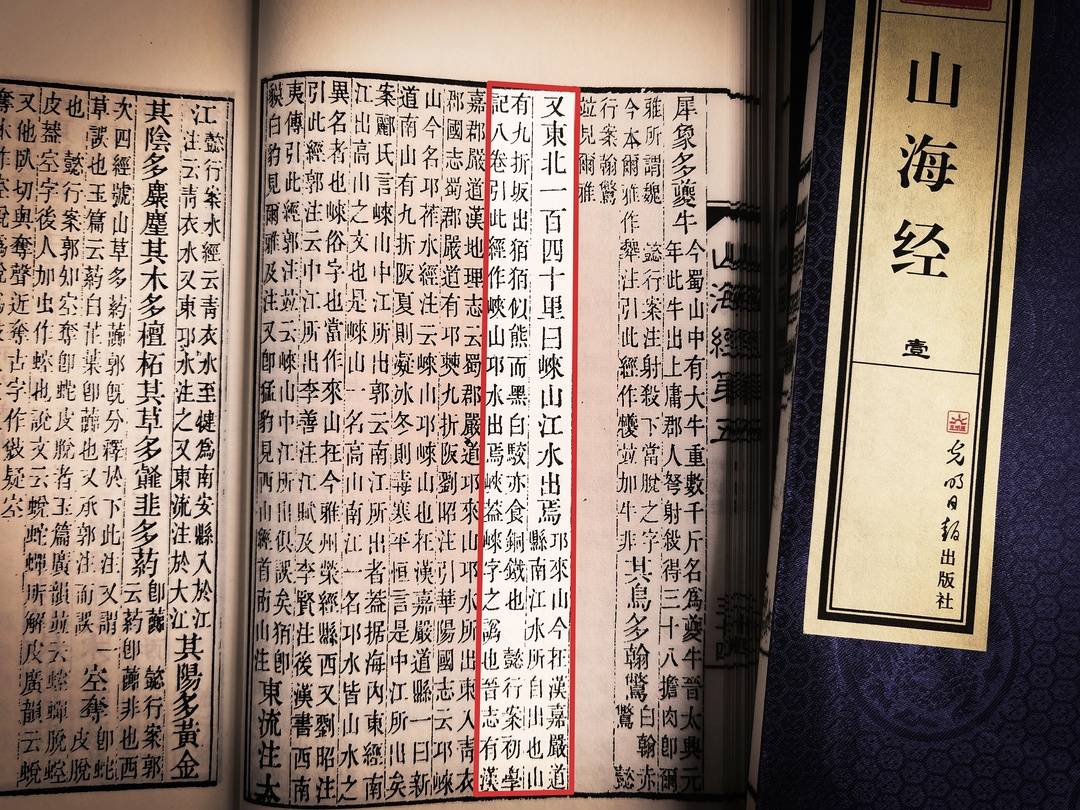 犀象多夔牛今蜀山中有大牛重數千斤名為夔牛晉太興元
年此牛出上庸郡人弩射殺得三十八擔肉即爾
雅所謂魏 懿行案注射殺下當脫之字
今本爾雅作犩注引此經作㹈並加牛非其鳥多翰鷩白翰赤鷩 懿
行案翰鷩
並見爾雅
又東北一百四十里曰崍山江水出焉邛來山今在漢嘉嚴道
縣南江水所自出也山
有九折坂出狛狛似熊而黑白駮亦食銅鐵也 懿行案初學
記八卷引此經作峽山邛水出焉峽葢崍字之譌也晉志有漢
嘉郡嚴道漢地理志云蜀郡嚴道邛來山邛水所出東入青衣
郡國志蜀郡嚴道有邛僰九折阪劉昭注引華陽國志云邛崍
山今名邛莋水經注云崍山邛崍山也在漢嘉嚴道縣一曰新
道南山有九折阪夏則凝冰冬則毒寒平恒言是中江所出矣
案酈氏言崍山中江所出郭云南江所出者葢据海內東經南
江出高山之文也是崍山一名高山南江一名邛水皆山水之
異名者也崍俗字也當作來山在今雅州榮經縣西又劉昭注
引此經郭注云中江所出李善注江賦及李賢注後漢書西南
夷傳引此經郭注並云崍山中江所出俱誤矣狛即
貘白豹見爾雅及注又即猛豹見西山經首南山注東流注大
江懿行案水經云青衣水至犍為南安縣入於江
注云青衣水又東邛水注之又東流注於大江其陽多黃金
其陰多麋麈其木多檀柘其草多䪥韭多葯即蘺 懿行案郭
云葯即蘺非也西
次四經號山草多葯蘺郭既分釋於下此注又謂一
草誤也玉篇云葯白芷葉即蘺也又承郭注而誤空奪即蛇
皮脫
也 懿行案郭知空奪即蛇皮脫者玉篇廣韻並云蟬脫
皮葢空字後人加虫作也說文云蛻蛇蟬所解皮廣韻云蛻
又他臥切與奪聲近奪古字作敓疑空
山海經第五
山海经
壹
光明日報出版社